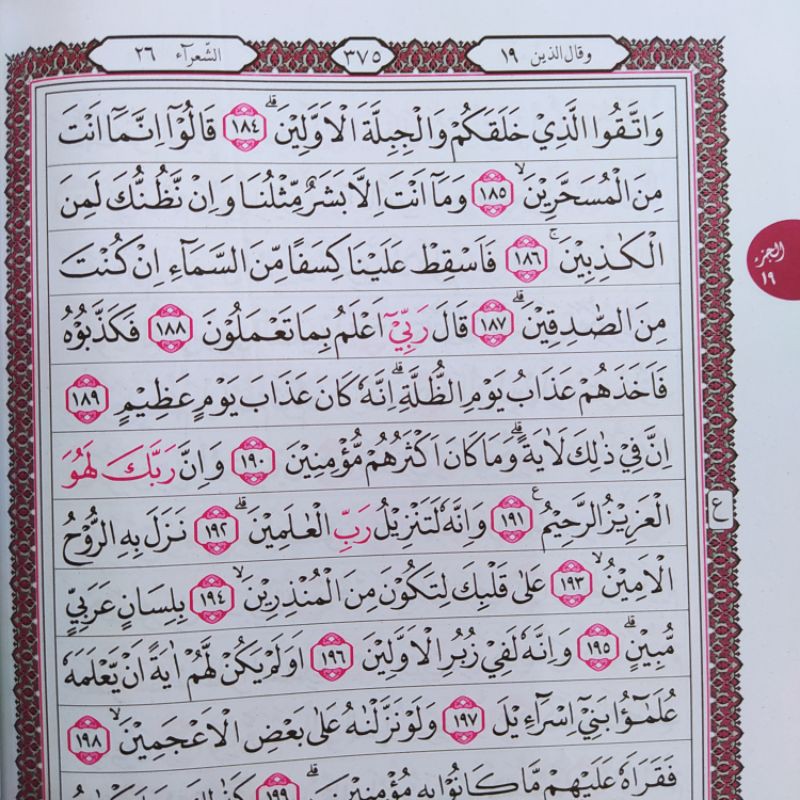 وقال الذين ١٩
٣٧٥
الشّعرآء ٢٦
وَاتَّقُوا الَّذِيْ خَلَقَكُمْ وَالْجِبِلَّةَ الْاَوَّلِيْنَ ۗ ١٨٤ قَالُوْٓا اِنَّمَآ اَنْتَ
مِنَ الْمُسَحَّرِيْنَ ۙ ١٨٥ وَمَآ اَنْتَ اِلَّا بَشَرٌ مِّثْلُنَا وَاِنْ نَّظُنُّكَ لَمِنَ
الْكٰذِبِيْنَ ۚ ١٨٦ فَاَسْقِطْ عَلَيْنَا كِسَفًا مِّنَ السَّمَاۤءِ اِنْ كُنْتَ
مِنَ الصّٰدِقِيْنَ ۗ ١٨٧ قَالَ رَبِّيْٓ اَعْلَمُ بِمَا تَعْمَلُوْنَ ١٨٨ فَكَذَّبُوْهُ
فَاَخَذَهُمْ عَذَابُ يَوْمِ الظُّلَّةِ ۗاِنَّهٗ كَانَ عَذَابَ يَوْمٍ عَظِيْمٍ ١٨٩
اِنَّ فِيْ ذٰلِكَ لَاٰيَةً ۗوَمَا كَانَ اَكْثَرُهُمْ مُّؤْمِنِيْنَ ١٩٠ وَاِنَّ رَبَّكَ لَهُوَ
الْعَزِيْزُ الرَّحِيْمُ ࣖ ١٩١ وَاِنَّهٗ لَتَنْزِيْلُ رَبِّ الْعٰلَمِيْنَ ۗ ١٩٢ نَزَلَ بِهِ الرُّوْحُ
الْاَمِيْنُ ۙ ١٩٣ عَلٰى قَلْبِكَ لِتَكُوْنَ مِنَ الْمُنْذِرِيْنَ ۙ ١٩٤ بِلِسَانٍ عَرَبِيٍّ
مُّبِيْنٍ ۗ ١٩٥ وَاِنَّهٗ لَفِيْ زُبُرِ الْاَوَّلِيْنَ ١٩٦ اَوَلَمْ يَكُنْ لَّهُمْ اٰيَةً اَنْ يَّعْلَمَهٗ
عُلَمٰۤؤُا بَنِيْٓ اِسْرَاۤءِيْلَ ١٩٧ وَلَوْ نَزَّلْنٰهُ عَلٰى بَعْضِ الْاَعْجَمِيْنَ ۙ ١٩٨
فَقَرَاَهٗ عَلَيْهِمْ مَّا كَانُوْا بِهٖ مُؤْمِنِيْنَ ۗ ١٩٩
الجزء
١٩
ع